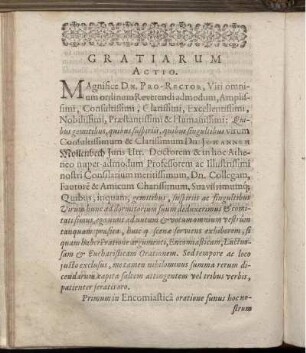 GRATIARUM
ACTIO.
MAgnifice DN. PRO-RECTOR, Viri omni-
um ordinum Reverendi admodum, Amplis-
simi, Consultissimi, Clarissimi, Excellentissimi,
Nobilissimi, Præstantissimi & Humanissimi: Qui-
bus gemitibus, quibus suspiriis, quibus singultibus virum
Consultissimum & Clarissimum Dn. JOHANNEM
Mollenbech Juris Utr. Doctorem & in hoc Athe-
neo nuper admodum Professorem ac Illustrissimi
nostri Consiliarium meritissimum, Dn. Collegam,
Fautorē & Amicum Charissimum, Suavissimumq;
Quibus, inquam, gemitibus, suspiriis ac singultibus
Virum hunc ad dormitorium suum deduxerimus
tanquam præfica, huic q. scena serviens exhiberem, si
quam habeo Oratione argumenti, Encomiasticam, Luctuo-
sam & Eucharisticam Orationem. Sed tempore ac loco
juste exclusus, metamen nihilominus summa rerum di-
cendarum capita saltem attingentem vel tribus verbis,
patienter feratis oro.
Primum in Encomiasticâ oratione funus hoc no-
strum